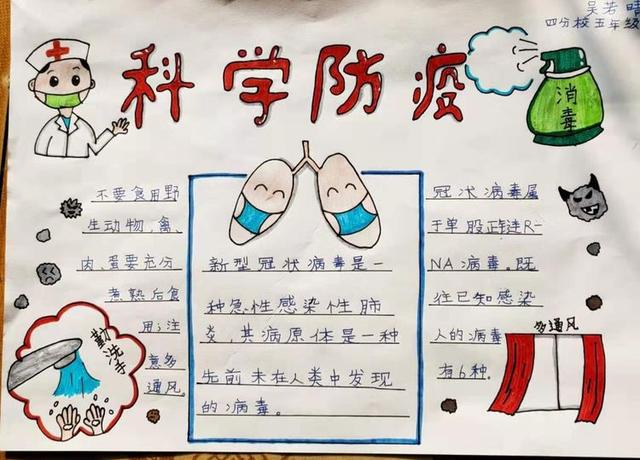 吴若唔
四分校五年级
科学防疫
消毒
不要食用野
生动物,禽、
肉、蛋要充分
煮熟后食
用;注
意多
通风。
勤洗手
新型冠状病毒是一
种急性感染性肺
炎,其病原体是一种
先前未在人类中发现
的病毒。
冠状病毒属
于单股正链R-
NA病毒。既
往已知感染
人的病毒
有6种.
多通风